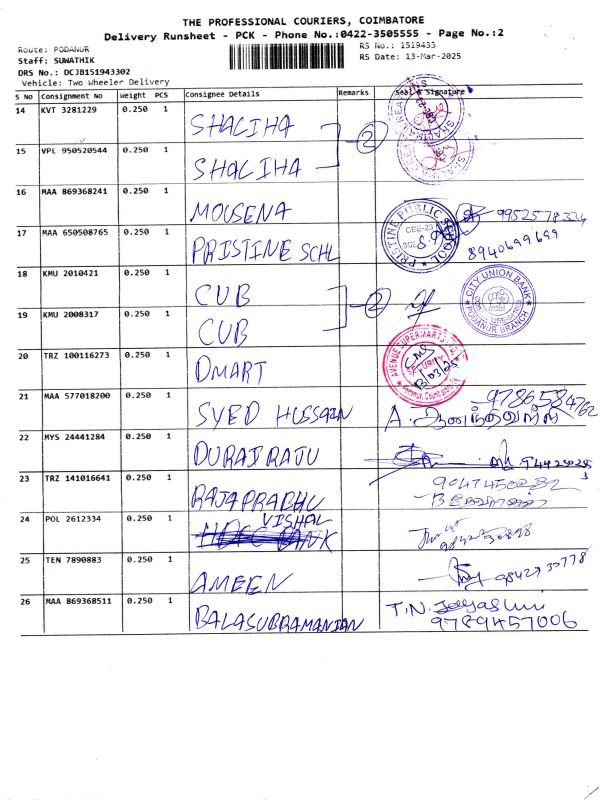 THE PROFESSIONAL COURIERS, COIMBATORE
Delivery Runsheet - PCK - Phone No.:0422-3505555 - Page No.:2
Route: PODANUR
RS No.: 1519433
Staff: SUWATHIK
RS Date: 13-Mar-2025
DRS No.: DCJB151943302
Vehicle: Two Wheeler Delivery
S No Consignment No Weight PCS Consignee Details Remarks Seal & Signature
14 KVT 3281229 0.250 1 SHALIHA
2
15 VPL 950520544 0.250 1 SHALIHA
16 MAA 869368241 0.250 1 MOUSENA 9952578334
17 MAA 650508765 0.250 1 PRISTINE SCHL 8940699699
PRISTINE PUBLIC SCHOOL
18 KMU 2010421 0.250 1 CUB
2
CITY UNION BANK
PODANUR BRANCH
19 KMU 2008317 0.250 1 CUB
20 TRZ 100116273 0.250 1 DMART
AVENUE SUPERMARTS
SECURITY
13/03/25
21 MAA 577018200 0.250 1 SYED HUSSAIN 9786584762
22 MYS 24441284 0.250 1 DURAIRAJU
23 TRZ 141016641 0.250 1 RAJAPRABHU 9047450282
24 POL 2612334 0.250 1 VISHAL
25 TEN 7890883 0.250 1 AMEEN
26 MAA 869368511 0.250 1 BALASUBRAMANIAN T.N.
9789457006